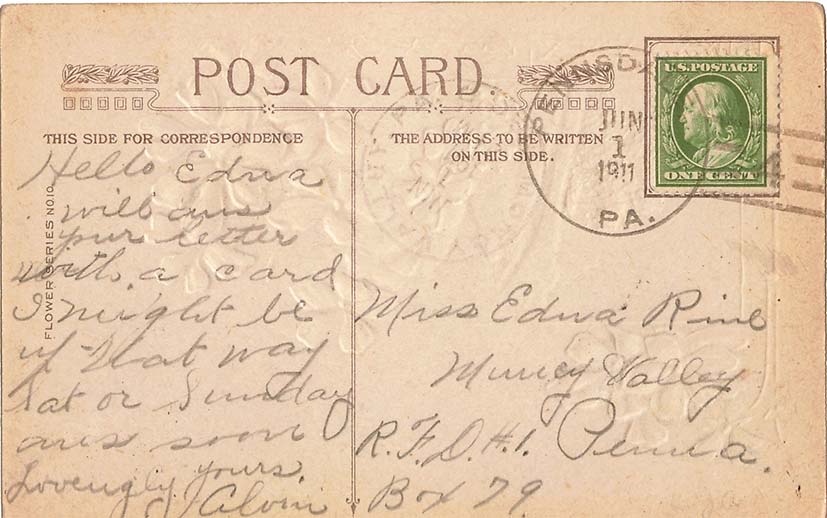 POST CARD
THIS SIDE FOR CORRESPONDENCE
THE ADDRESS TO BE WRITTEN
ON THIS SIDE.
FLOWER SERIES NO.10
PENNSDALE
JUN
1
1911
PA.
U.S. POSTAGE
ONE CENT
Hello Edna
will ans
your letter
with a card
I might be
up that way
Sat or Sunday
ans soon
Lovengly yours.
Alvin
Miss Edna Rine
Muncy Valley
R.F.D. #1. Penna.
Box 79